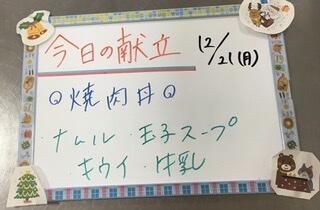 今日の献立 12/21(月)
◎焼肉丼◎
・ナムル・玉子スープ
・キウイ・牛乳